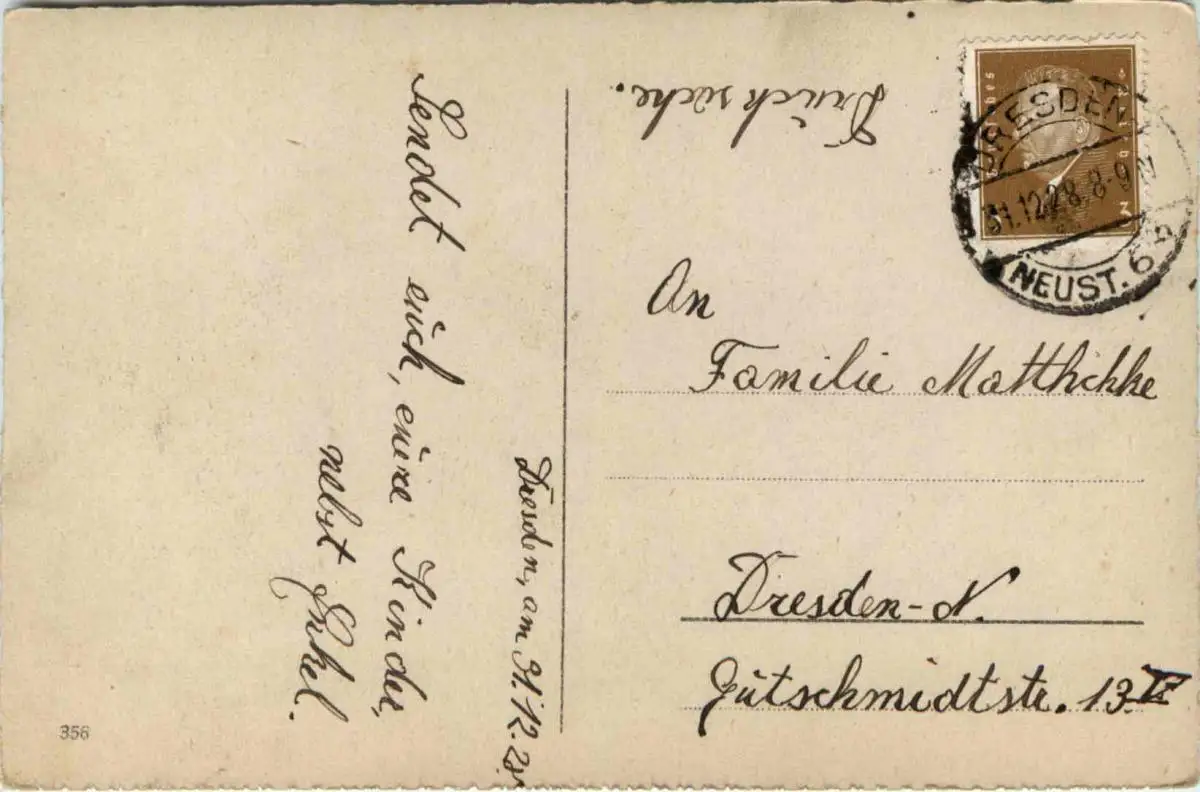 Dresden, am 31.12.28.
Sendet euch, eure Kinder,
nebst Enkel.
Drucksache.
Deutsches Reich
3 3
DRESDEN
31.12.28. 8-9 N
NEUST. 6
An
Familie Matthichke
Dresden-N.
Gutschmidtstr. 13 II
356